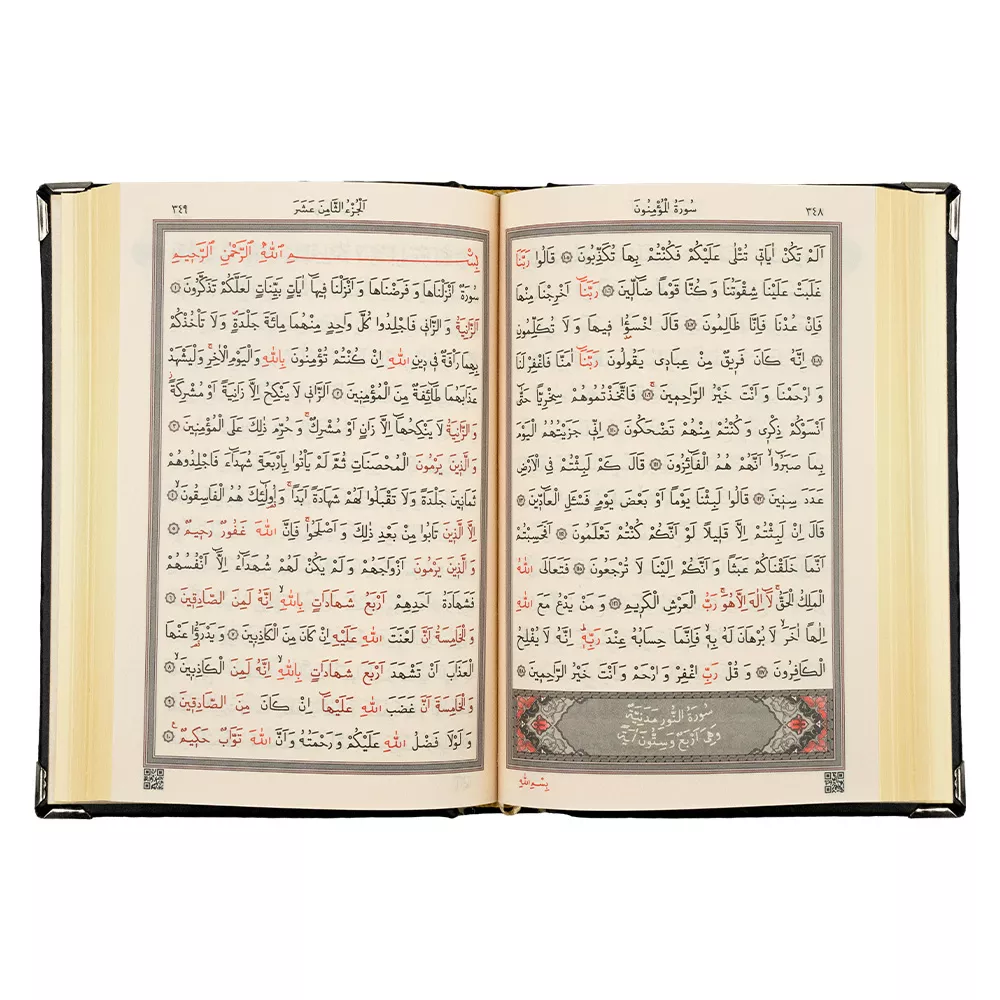 سُورَةُ الْمُؤْمِنُونَ ٣٤٨
اَلَمْ تَكُنْ اٰيَات۪ي تُتْلٰى عَلَيْكُمْ فَكُنْتُمْ بِهَا تُكَذِّبُونَ ﴿١٠٥﴾ قَالُوا رَبَّنَا
غَلَبَتْ عَلَيْنَا شِقْوَتُنَا وَكُنَّا قَوْمًا ضَٓالّ۪ينَ ﴿١٠٦﴾ رَبَّنَٓا اَخْرِجْنَا مِنْهَا
فَاِنْ عُدْنَا فَاِنَّا ظَالِمُونَ ﴿١٠٧﴾ قَالَ اخْسَؤُ۫ا ف۪يهَا وَلَا تُكَلِّمُونِ
﴿١٠٨﴾ اِنَّهُ كَانَ فَر۪يقٌ مِنْ عِبَاد۪ي يَقُولُونَ رَبَّنَٓا اٰمَنَّا فَاغْفِرْ لَنَا
وَارْحَمْنَا وَاَنْتَ خَيْرُ الرَّاحِم۪ينَ ﴿١٠٩﴾ فَاتَّخَذْتُمُوهُمْ سِخْرِيًّا حَتّٰٓى
اَنْسَوْكُمْ ذِكْر۪ي وَكُنْتُمْ مِنْهُمْ تَضْحَكُونَ ﴿١١٠﴾ اِنّ۪ي جَزَيْتُهُمُ الْيَوْمَ
بِمَا صَبَرُٓوا اَنَّهُمْ هُمُ الْفَٓائِزُونَ ﴿١١١﴾ قَالَ كَمْ لَبِثْتُمْ فِي الْاَرْضِ
عَدَدَ سِن۪ينَ ﴿١١٢﴾ قَالُوا لَبِثْنَا يَوْمًا اَوْ بَعْضَ يَوْمٍ فَسْـَٔلِ الْعَٓادّ۪ينَ ﴿١١٣﴾
قَالَ اِنْ لَبِثْتُمْ اِلَّا قَل۪يلًا لَوْ اَنَّكُمْ كُنْتُمْ تَعْلَمُونَ ﴿١١٤﴾ اَفَحَسِبْتُمْ
اَنَّمَا خَلَقْنَاكُمْ عَبَثًا وَاَنَّكُمْ اِلَيْنَا لَا تُرْجَعُونَ ﴿١١٥﴾ فَتَعَالَى اللّٰهُ
الْمَلِكُ الْحَقُّۚ لَٓا اِلٰهَ اِلَّا هُوَۚ رَبُّ الْعَرْشِ الْكَر۪يمِ ﴿١١٦﴾ وَمَنْ يَدْعُ مَعَ اللّٰهِ
اِلٰهًا اٰخَرَۙ لَا بُرْهَانَ لَهُ بِه۪ۙ فَاِنَّمَا حِسَابُهُ عِنْدَ رَبِّه۪ۜ اِنَّهُ لَا يُفْلِحُ
الْكَافِرُونَ ﴿١١٧﴾ وَقُلْ رَبِّ اغْفِرْ وَارْحَمْ وَاَنْتَ خَيْرُ الرَّاحِم۪ينَ ﴿١١٨﴾
سُورَةُ النُّورِ مَدَنِيَّةٌ
وَهِيَ اَرْبَعٌ وَسِتُّونَ اٰيَةً
بِسْمِ اللّٰهِ
٣٤٩ اَلْجُزْءُ الثَّامِنَ عَشَرَ
بِسْمِ اللّٰهِ الرَّحْمٰنِ الرَّح۪يمِ
سُورَةٌ اَنْزَلْنَاهَا وَفَرَضْنَاهَا وَاَنْزَلْنَا ف۪يهَٓا اٰيَاتٍ بَيِّنَاتٍ لَعَلَّكُمْ تَذَكَّرُونَ ﴿١﴾
اَلزَّانِيَةُ وَالزَّان۪ي فَاجْلِدُوا كُلَّ وَاحِدٍ مِنْهُمَا مِائَةَ جَلْدَةٍۖ وَلَا تَأْخُذْكُمْ
بِهِمَا رَأْفَةٌ ف۪ي د۪ينِ اللّٰهِ اِنْ كُنْتُمْ تُؤْمِنُونَ بِاللّٰهِ وَالْيَوْمِ الْاٰخِرِۚ وَلْيَشْهَدْ
عَذَابَهُمَا طَٓائِفَةٌ مِنَ الْمُؤْمِن۪ينَ ﴿٢﴾ اَلزَّان۪ي لَا يَنْكِحُ اِلَّا زَانِيَةً اَوْ مُشْرِكَةًۘ
وَالزَّانِيَةُ لَا يَنْكِحُهَٓا اِلَّا زَانٍ اَوْ مُشْرِكٌۚ وَحُرِّمَ ذٰلِكَ عَلَى الْمُؤْمِن۪ينَ ﴿٣﴾
وَالَّذ۪ينَ يَرْمُونَ الْمُحْصَنَاتِ ثُمَّ لَمْ يَأْتُوا بِاَرْبَعَةِ شُهَدَٓاءَ فَاجْلِدُوهُمْ
ثَمَان۪ينَ جَلْدَةً وَلَا تَقْبَلُوا لَهُمْ شَهَادَةً اَبَدًاۚ وَاُو۬لٰٓئِكَ هُمُ الْفَاسِقُونَ ﴿٤﴾
اِلَّا الَّذ۪ينَ تَابُوا مِنْ بَعْدِ ذٰلِكَ وَاَصْلَحُواۚ فَاِنَّ اللّٰهَ غَفُورٌ رَح۪يمٌ ﴿٥﴾
وَالَّذ۪ينَ يَرْمُونَ اَزْوَاجَهُمْ وَلَمْ يَكُنْ لَهُمْ شُهَدَٓاءُ اِلَّٓا اَنْفُسُهُمْ
فَشَهَادَةُ اَحَدِهِمْ اَرْبَعُ شَهَادَاتٍ بِاللّٰهِۙ اِنَّهُ لَمِنَ الصَّادِق۪ينَ ﴿٦﴾
وَالْخَامِسَةُ اَنَّ لَعْنَتَ اللّٰهِ عَلَيْهِ اِنْ كَانَ مِنَ الْكَاذِب۪ينَ ﴿٧﴾ وَيَدْرَؤُ۬ا عَنْهَا
الْعَذَابَ اَنْ تَشْهَدَ اَرْبَعَ شَهَادَاتٍ بِاللّٰهِۙ اِنَّهُ لَمِنَ الْكَاذِب۪ينَۙ ﴿٨﴾
وَالْخَامِسَةَ اَنَّ غَضَبَ اللّٰهِ عَلَيْهَٓا اِنْ كَانَ مِنَ الصَّادِق۪ينَ ﴿٩﴾
وَلَوْلَا فَضْلُ اللّٰهِ عَلَيْكُمْ وَرَحْمَتُهُ وَاَنَّ اللّٰهَ تَوَّابٌ حَك۪يمٌ۟ ﴿١٠﴾